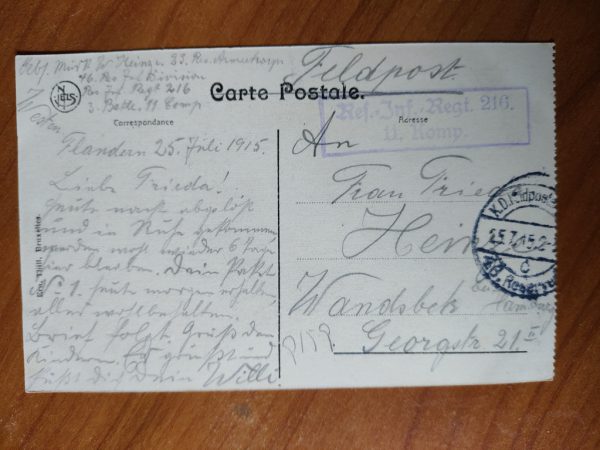 Feldpost
Gefr. Heinzen 23. Res. Armeekorps
46. Res. Inf. Division
Res. Inf. Regt 216
3. Batl. 11 Comp
Westen
NELS
Carte Postale.
Correspondance
Adresse
Res.-Inf.-Regt. 216.
11. Komp.
Flandern 25. Juli 1915.
Liebe Frieda!
Heute nacht abgelöst
und in Ruhe gekommen
werden wohl wieder 6 Tage
hier bleiben. Dein Paket
No 1. heute morgen erhalten,
alles wohlbehalten.
Brief folgt. Gruß den
Kindern. Es grüßt und
küßt dich Dein Willi.
Thill, Bruxelles.
An
Frau Frieda
Wandsbek
bei Hamburg
Georgstr. 21 II
K.D. Feldpost
25.7.15.2-
c
46. Reserve